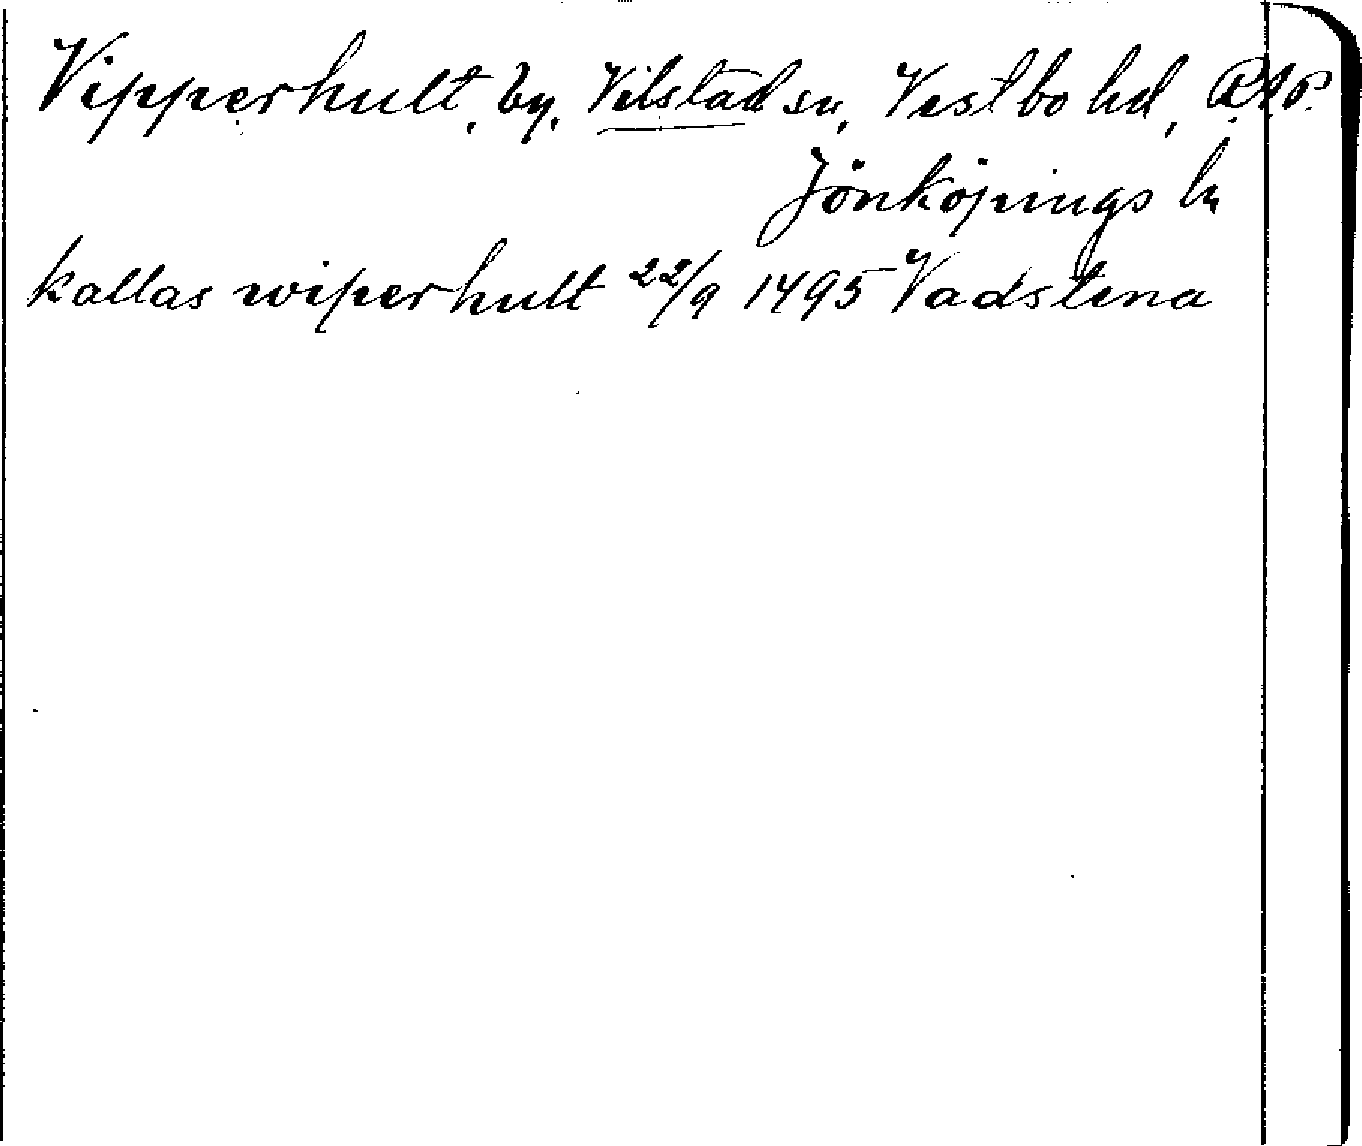 Vipperhult, by, Vilstad sn, Vestbo hd, R.A.P.
Jönköpings ln
kallas wiperhult 22/9 1495 Vadstena